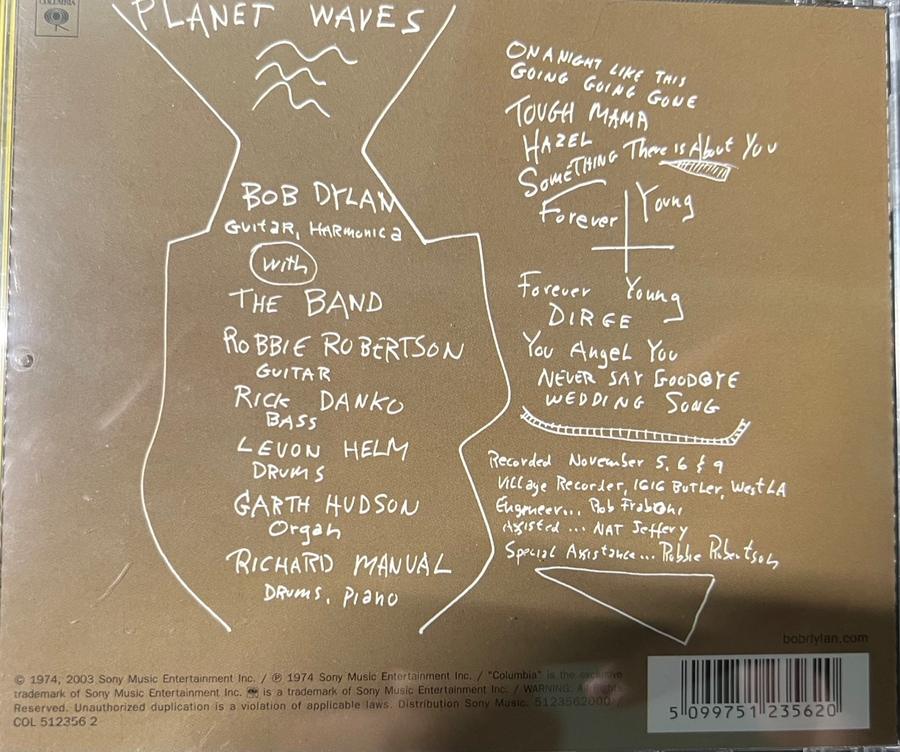 COLUMBIA
PLANET WAVES
BOB DYLAN
Guitar, Harmonica
with
THE BAND
ROBBIE ROBERTSON
GUITAR
RICK DANKO
BASS
LEVON HELM
DRUMS
GARTH HUDSON
Organ
RICHARD MANUAL
DRUMS, Piano
ON A NIGHT LIKE THIS
GOING GOING GONE
TOUGH MAMA
HAZEL
SOMETHING There is About You
Forever Young
Forever Young
DIRGE
You Angel You
NEVER SAY GOODBYE
WEDDING SONG
Recorded November 5, 6 & 9
Village Recorder, 1616 BUTLER, West LA
Engineer... Bob Fraboni
Assisted ... NAT Jeffery
Special Assistance... Robbie Robertson
bobdylan.com
© 1974, 2003 Sony Music Entertainment Inc. / ℗ 1974 Sony Music Entertainment Inc. / "Columbia" is the exclusive
trademark of Sony Music Entertainment Inc. is a trademark of Sony Music Entertainment Inc. / WARNING: All Rights
Reserved. Unauthorized duplication is a violation of applicable laws. Distribution Sony Music. 5123562000 /
COL 512356 2
5 099751 235620